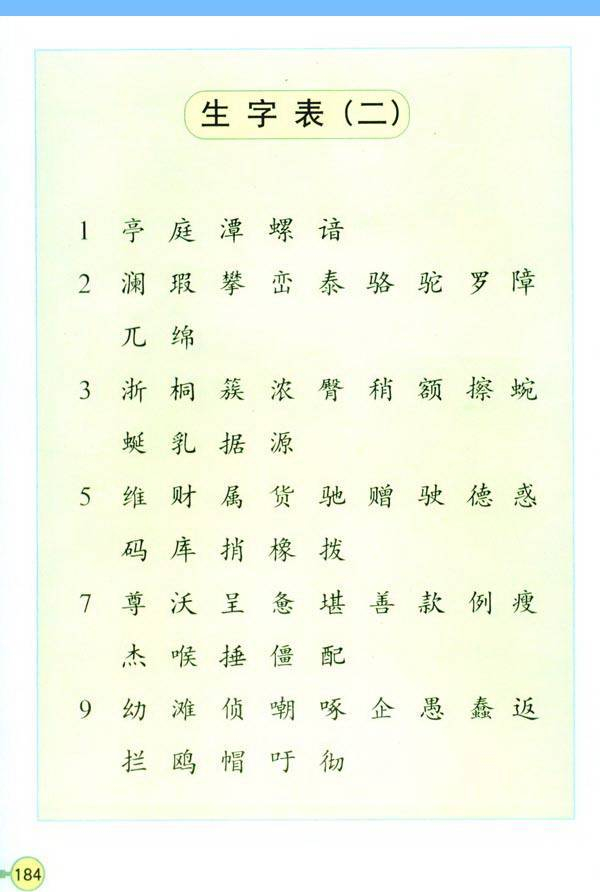 生字表(二)
1 亭 庭 潭 螺 谙
2 澜 瑕 攀 峦 泰 骆 驼 罗 障
兀 绵
3 浙 桐 簇 浓 臀 稍 额 擦 蜿
蜒 乳 据 源
5 维 财 属 货 驰 赠 驶 德 惑
码 库 捎 橡 拨
7 尊 沃 呈 惫 堪 善 款 例 瘦
杰 喉 捶 僵 配
9 幼 滩 侦 嘲 啄 企 愚 蠢 返
拦 鸥 帽 吁 彻
184